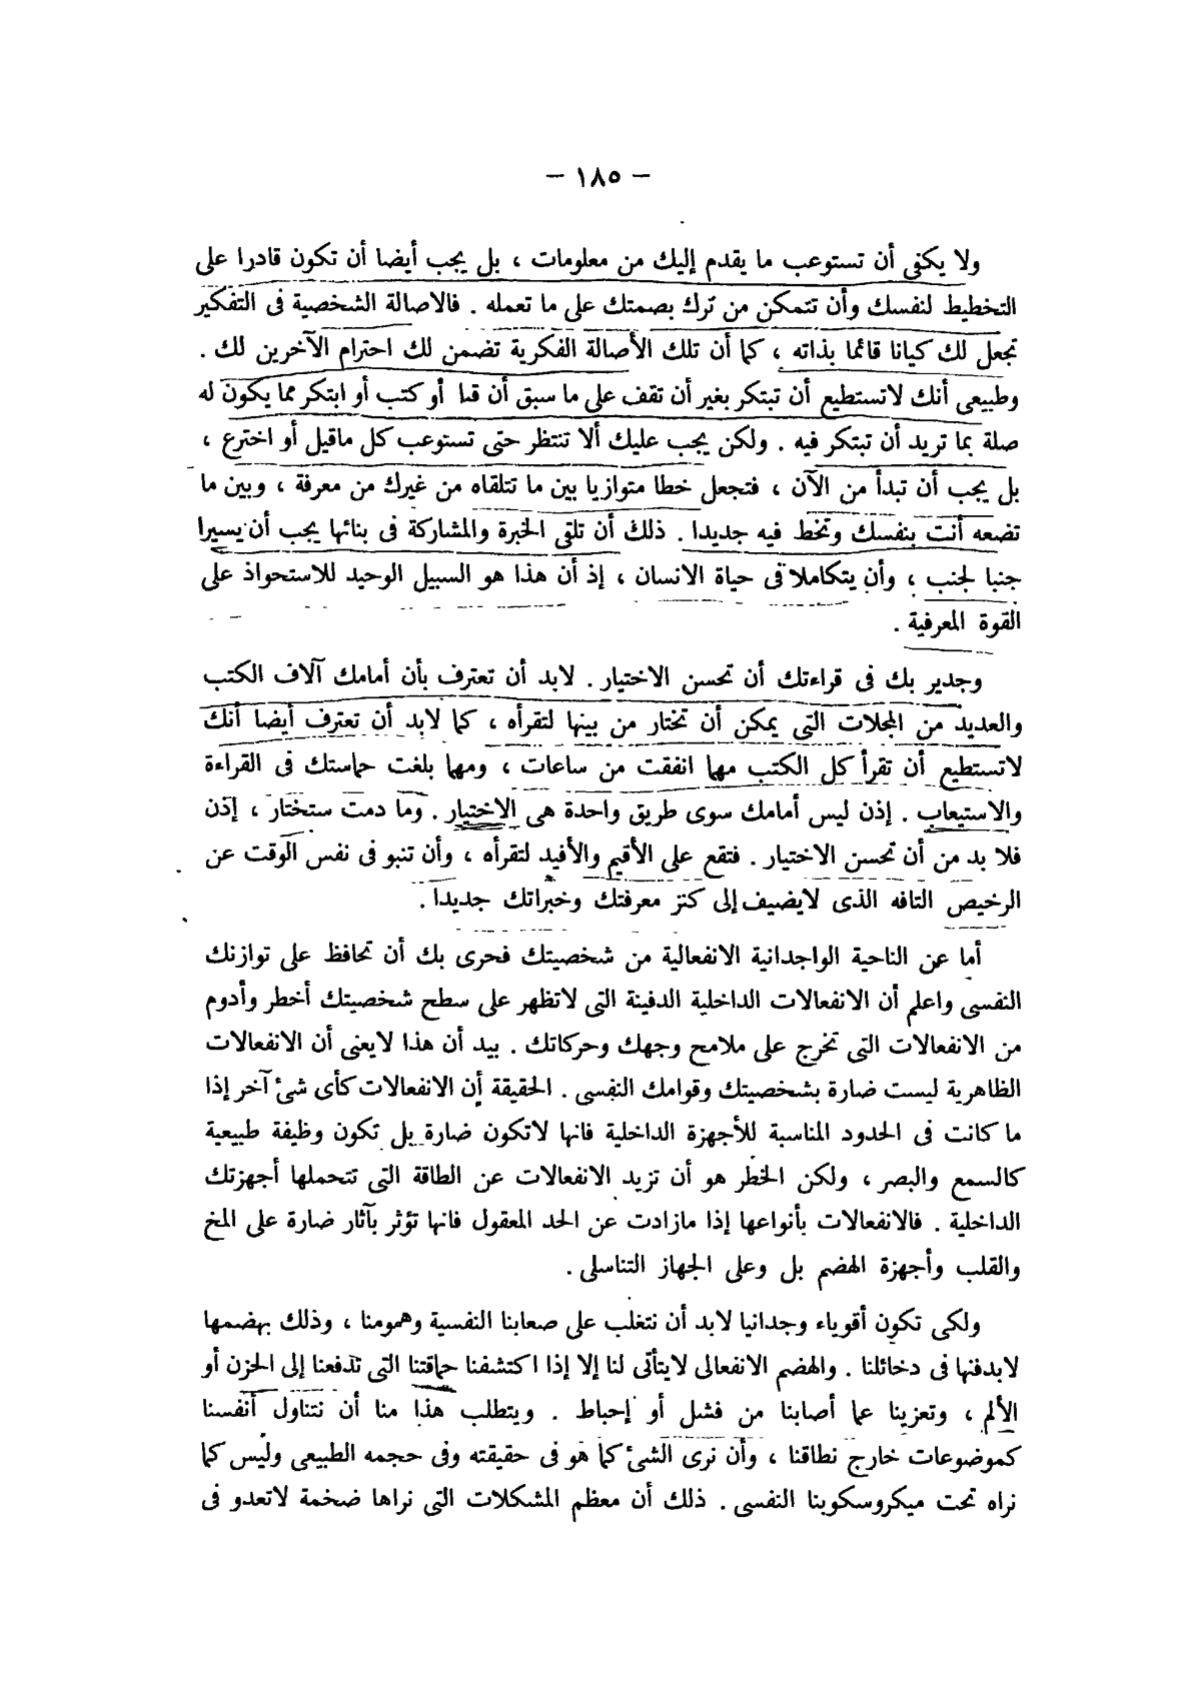 — ١٨٥ —
ولا يكفى أن تستوعب ما يقدم إليك من معلومات ، بل يجب أيضا أن تكون قادرا على
التخطيط لنفسك وأن تتمكن من ترك بصمتك على ما تعمله . فالاصالة الشخصية فى التفكير
تجعل لك كيانا قائما بذاته ، كما أن تلك الأصالة الفكرية تضمن لك احترام الآخرين لك .
وطبيعى أنك لاتستطيع أن تبتكر بغير أن تقف على ما سبق أن أو كتب أو ابتكر مما يكون له
صلة بما تريد أن تبتكر فيه . ولكن يجب عليك ألا تنتظر حتى تستوعب كل ماقيل أو اخترع ،
بل يجب أن تبدأ من الآن ، فتجعل خطا متوازيا بين ما تتلقاه من غيرك من معرفة ، وبين ما
تضعه أنت بنفسك وتخط فيه جديدا . ذلك أن تلقى الخبرة والمشاركة فى بنائها يجب أن يسيرا
جنبا لجنب ، وأن يتكاملا فى حياة الانسان ، إذ أن هذا هو السبيل الوحيد للاستحواذ على
القوة المعرفية .
وجدير بك فى قراءتك أن تحسن الاختيار . لابد أن تعترف بأن أمامك آلاف الكتب
والعديد من المجلات التى يمكن أن تختار من بينها لتقرأه ، كما لابد أن تعترف أيضا أنك
لاتستطيع أن تقرأ كل الكتب مهما انفقت من ساعات ، ومهما بلغت حماستك فى القراءة
والاستيعاب . إذن ليس أمامك سوى طريق واحدة هى الاختيار . وما دمت ستختار ، إذن
فلا بد من أن تحسن الاختيار . فتقع على الأقيم والأفيد لتقرأه ، وأن تنبو فى نفس الوقت عن
الرخيص التافه الذى لايضيف إلى كنز معرفتك وخبراتك جديدا .
أما عن الناحية الواجدانية الانفعالية من شخصيتك فحرى بك أن تحافظ على توازنك
النفسى واعلم أن الانفعالات الداخلية الدفينة التى لاتظهر على سطح شخصيتك أخطر وأدوم
من الانفعالات التى تخرج على ملامح وجهك وحركاتك . بيد أن هذا لايعنى أن الانفعالات
الظاهرية ليست ضارة بشخصيتك وقوامك النفسى . الحقيقة أن الانفعالات كأى شئ آخر إذا
ما كانت فى الحدود المناسبة للأجهزة الداخلية فانها لاتكون ضارة بل تكون وظيفة طبيعية
كالسمع والبصر ، ولكن الخطر هو أن تزيد الانفعالات عن الطاقة التى تتحملها أجهزتك
الداخلية . فالانفعالات بأنواعها إذا مازادت عن الحد المعقول فانها تؤثر بآثار ضارة على المخ
والقلب وأجهزة الهضم بل وعلى الجهاز التناسلى .
ولكى تكون أقوياء وجدانيا لابد أن نتغلب على صعابنا النفسية وهمومنا ، وذلك بهضمها
لابدفنها فى دخائلنا . والهضم الانفعالى لايتأتى لنا إلا إذا اكتشفنا حماقتنا التى تدفعنا إلى الحزن أو
الألم ، وتعزينا عما أصابنا من فشل أو إحباط . ويتطلب هذا منا أن نتناول أنفسنا
كموضوعات خارج نطاقنا ، وأن نرى الشئ كما هو فى حقيقته وفى حجمه الطبيعى وليس كما
نراه تحت ميكروسكوبنا النفسى . ذلك أن معظم المشكلات التى نراها ضخمة لاتعدو فى